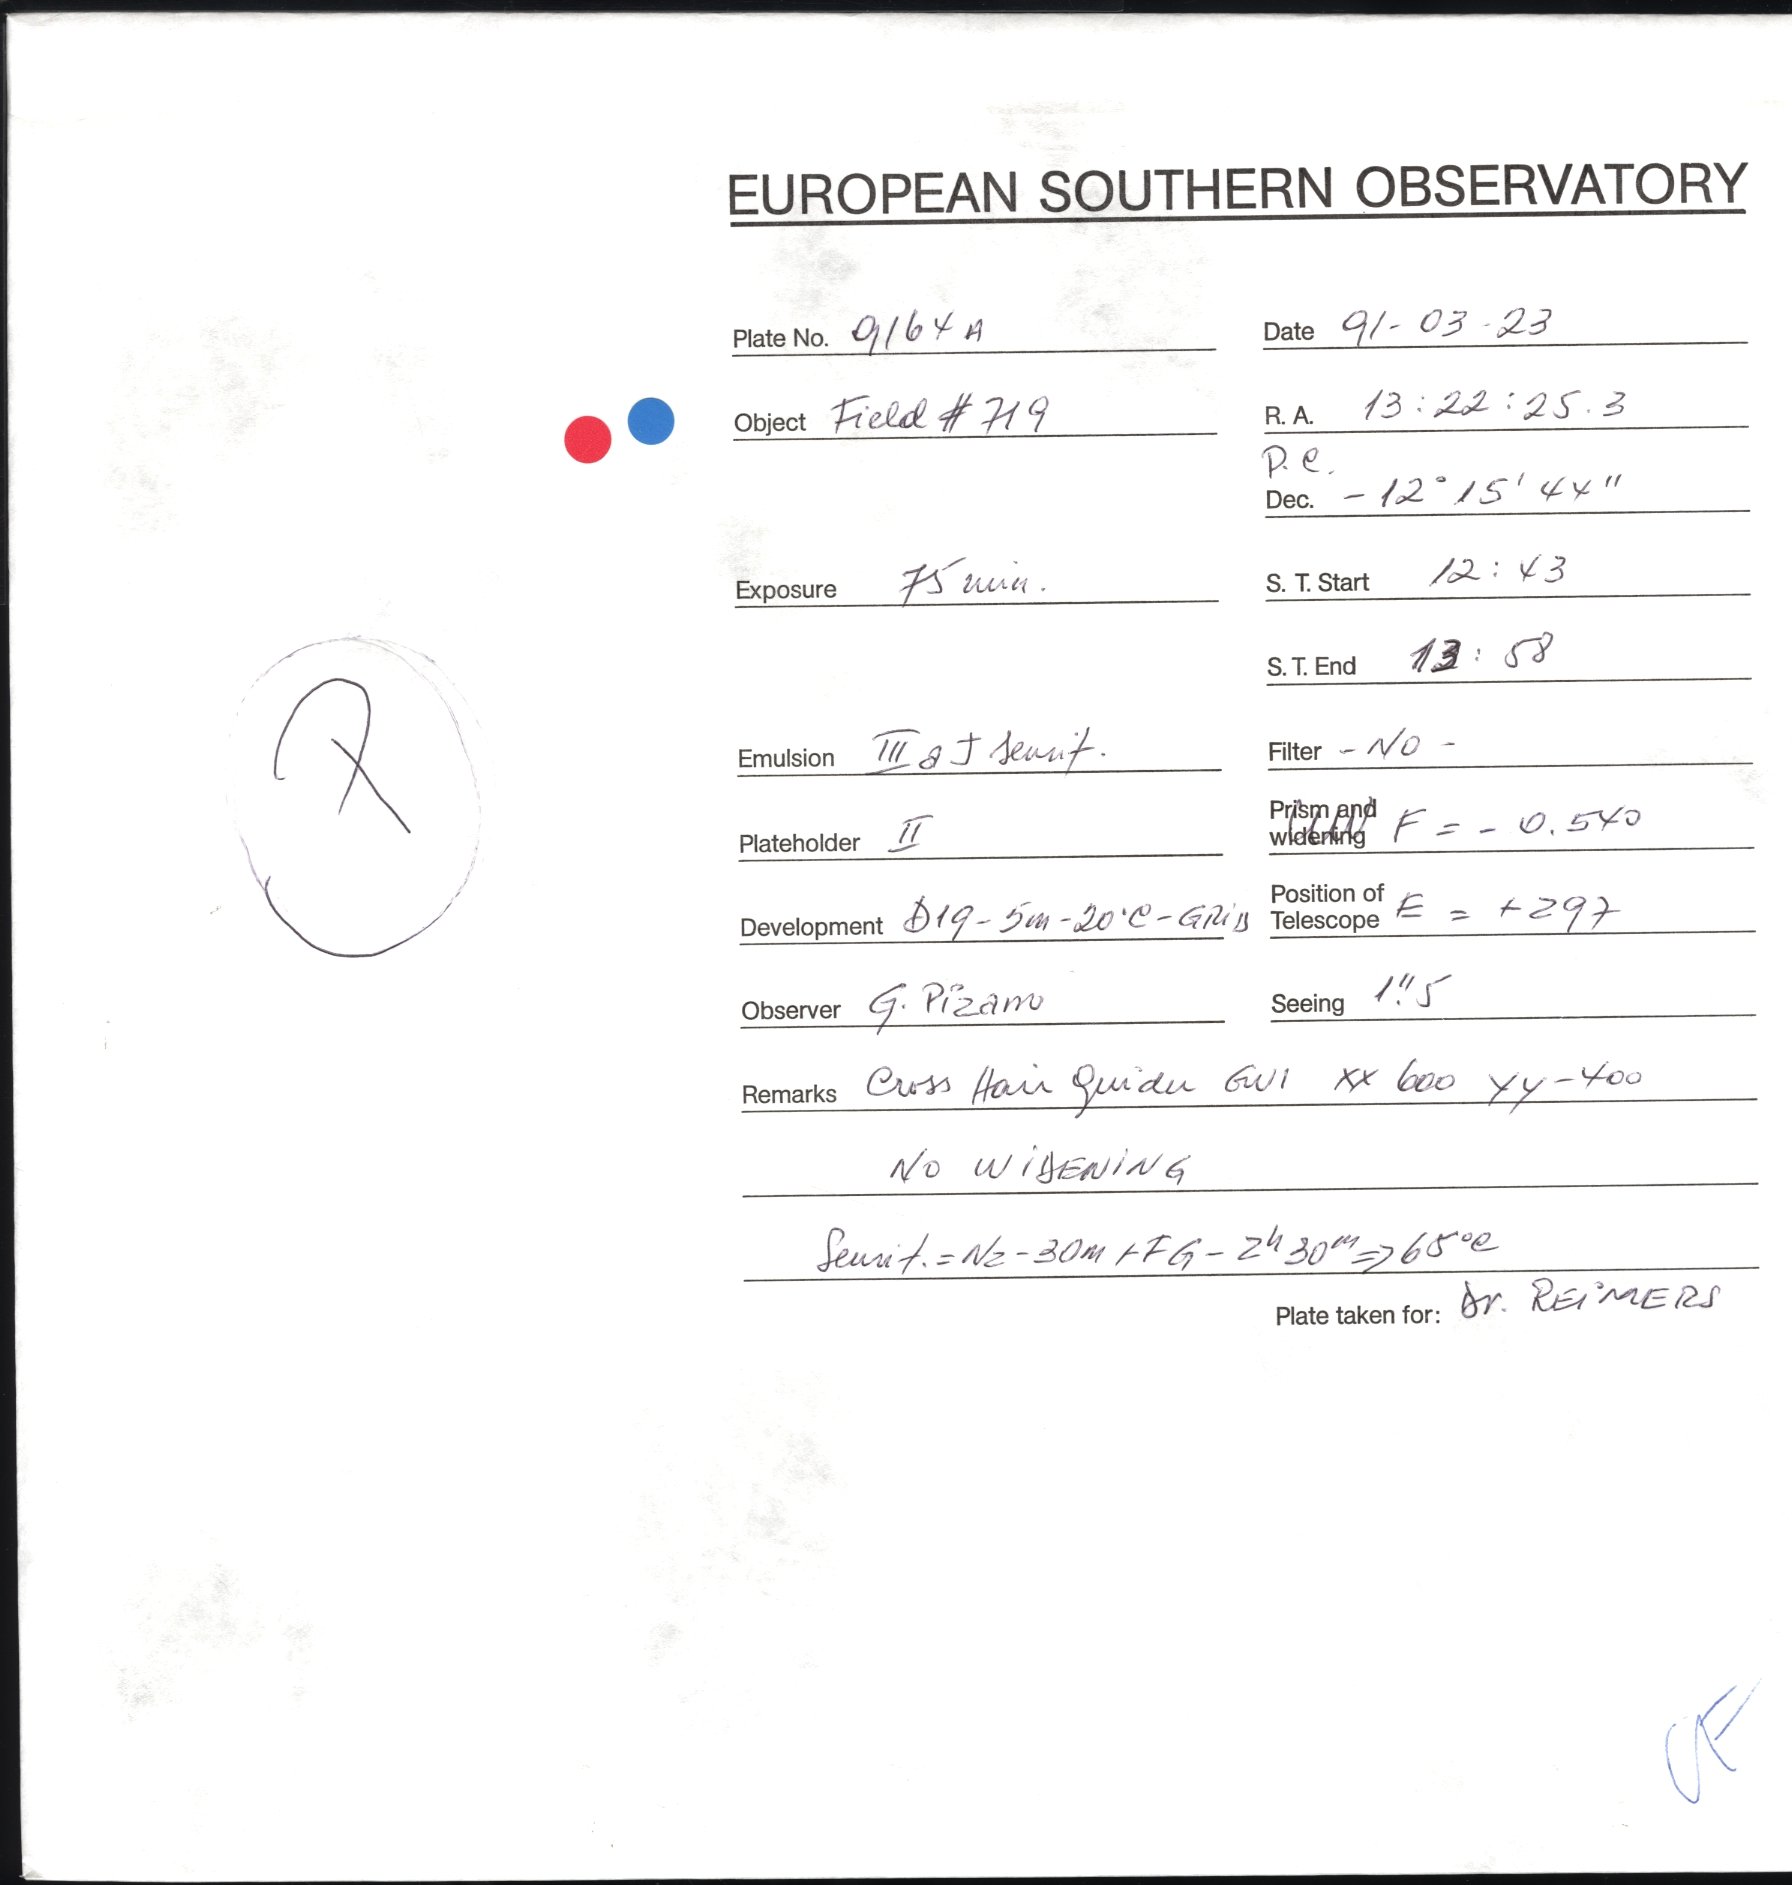 EUROPEAN SOUTHERN OBSERVATORY
Plate No. 9164 A
Date 91-03-23
Object Field # 719
R. A. 13:22:25.3
P.C.
Dec. -12° 15' 44"
Exposure 75 min.
S. T. Start 12:43
S. T. End 13:58
Emulsion III a J sensit.
Filter - NO -
Plateholder II
Prism and widening F = - 0.540
Development D19-5m-20°C-GRIB
Position of Telescope E = +297
Observer G. Pizarro
Seeing 1".5
Remarks Cross Hair Guider GW1 XX 600 YY-400
NO WIDENING
Sensit. = N2-30m + FG-2h30m => 65°C
Plate taken for: Dr. REIMERS